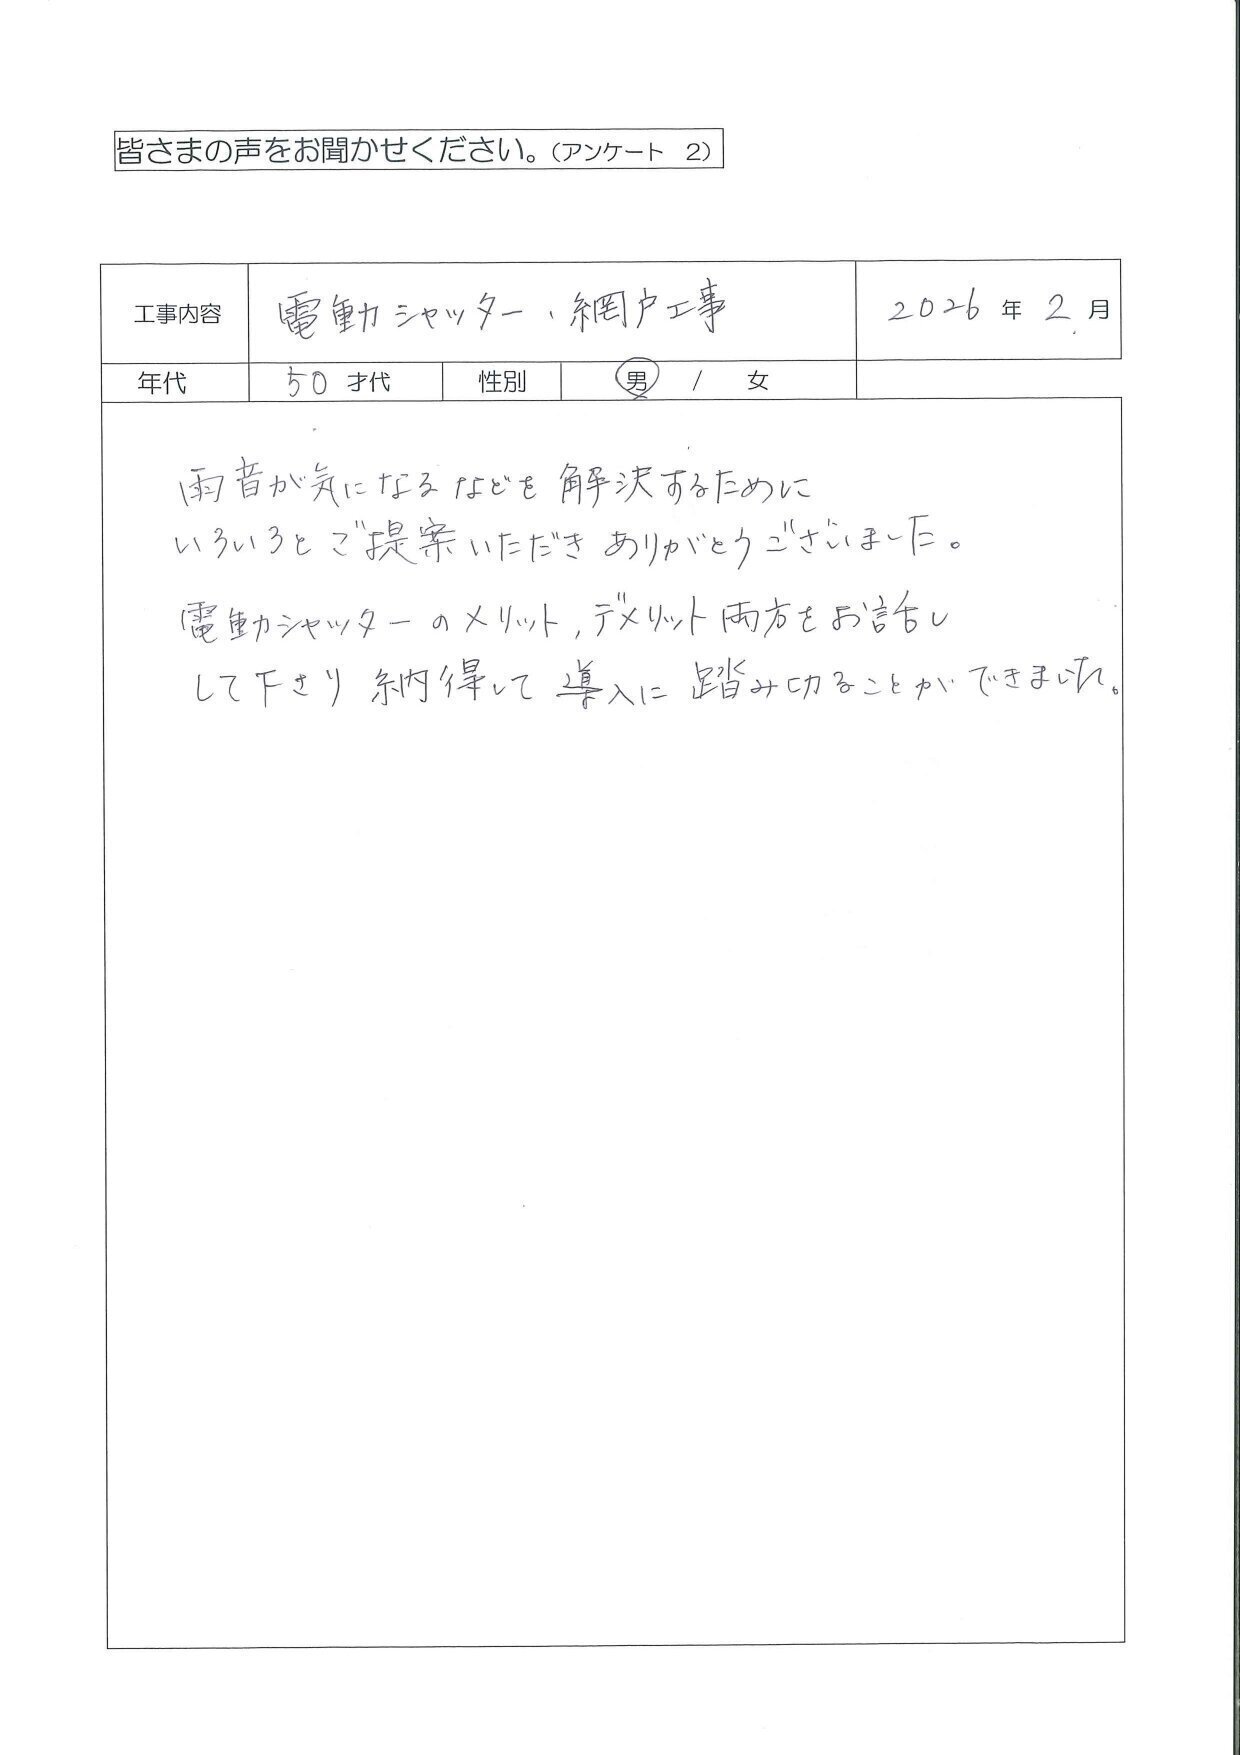 皆さまの声をお聞かせください。（アンケート　2）
工事内容 電動シャッター、網戸工事 2026 年 2 月
年代 50 才代 性別 男 / 女
雨音が気になるなどを解決するために
いろいろとご提案いただきありがとうございました。
電動シャッターのメリット,デメリット両方をお話し
して下さり納得して導入に踏み切ることができました。